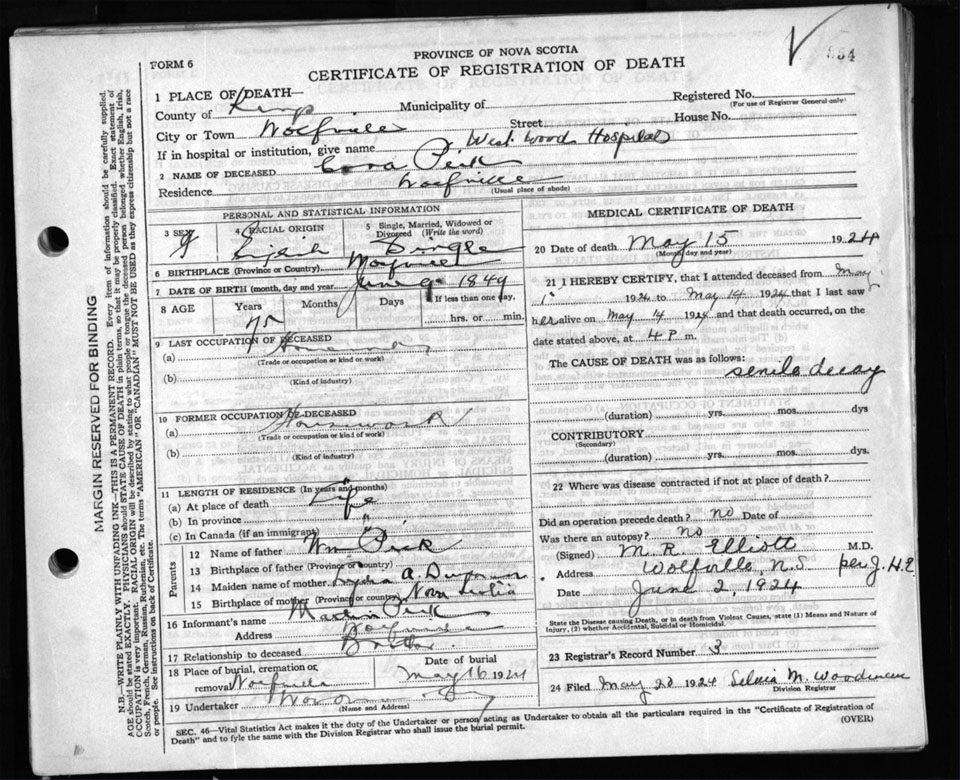 FORM 6
PROVINCE OF NOVA SCOTIA
CERTIFICATE OF REGISTRATION OF DEATH
1 PLACE OF DEATH—
County of Kings Municipality of Registered No.
(For use of Registrar General only)
City or Town Wolfville Street House No.
If in hospital or institution, give name West Wood Hospital
2 NAME OF DECEASED Cora Peck
Residence Wolfville
(Usual place of abode)
PERSONAL AND STATISTICAL INFORMATION
3 SEX F 4 RACIAL ORIGIN English 5 Single, Married, Widowed or Divorced (Write the word) Single
6 BIRTHPLACE (Province or Country) Wolfville
7 DATE OF BIRTH (month, day and year) June 9 1849
8 AGE Years 75 Months Days If less than one day, hrs. or min.
9 LAST OCCUPATION OF DECEASED
(a)
(Trade or occupation or kind of work)
(b)
(Kind of industry)
10 FORMER OCCUPATION OF DECEASED
(a) Housework
(Trade or occupation or kind of work)
(b)
(Kind of industry)
11 LENGTH OF RESIDENCE (In years and months)
(a) At place of death Life
(b) In province "
(c) In Canada (if an immigrant) "
Parents
12 Name of father Wm Peck
13 Birthplace of father (Province or Country)
14 Maiden name of mother Lydia A.
15 Birthplace of mother (Province or country) Nova Scotia
16 Informant's name Martin Peck
Address Wolfville
17 Relationship to deceased Brother
18 Place of burial, cremation or removal Wolfville Date of burial May 16 1924
19 Undertaker
(Name and Address)
MEDICAL CERTIFICATE OF DEATH
20 Date of death May 15 1924
(Month day and year)
21 I HEREBY CERTIFY, that I attended deceased from May
1 1924 to May 14 1924 that I last saw
her alive on May 14 1924 and that death occurred, on the
date stated above, at 4 P m.
The CAUSE OF DEATH was as follows:
senile decay
(duration) yrs. mos. dys
CONTRIBUTORY
(Secondary)
(duration) yrs. mos. dys.
22 Where was disease contracted if not at place of death?
Did an operation precede death? no Date of
Was there an autopsy? No
(Signed) M. R. Elliott M.D.
Address Wolfville, N.S. per J. H. E.
Date June 2, 1924
State the Disease causing Death, or in death from Violent Causes, state (1) Means and Nature of Injury, (2) whether Accidental, Suicidal or Homicidal.
23 Registrar's Record Number 3
24 Filed May 20 1924 Selvia M. Woodman
Division Registrar
SEC. 46—Vital Statistics Act makes it the duty of the Undertaker or person acting as Undertaker to obtain all the particulars required in the "Certificate of Registration of
Death" and to fyle the same with the Division Registrar who shall issue the burial permit.
(OVER)
MARGIN RESERVED FOR BINDING
N.B.—WRITE PLAINLY WITH UNFADING INK—THIS IS A PERMANENT RECORD. Every item of information should be carefully supplied.
AGE should be stated EXACTLY. PHYSICIANS should STATE CAUSE OF DEATH in plain terms, so that it may be properly classified. Exact statement of
OCCUPATION is very important. RACIAL ORIGIN will be described by stating to what people or tongue the deceased person belonged whether English, Irish,
Scotch, French, German, Russian, Ruthenian, etc. The terms "AMERICAN" OR "CANADIAN" MUST NOT BE USED as they express citizenship but not a race
or people. See instructions on back of Certificate.